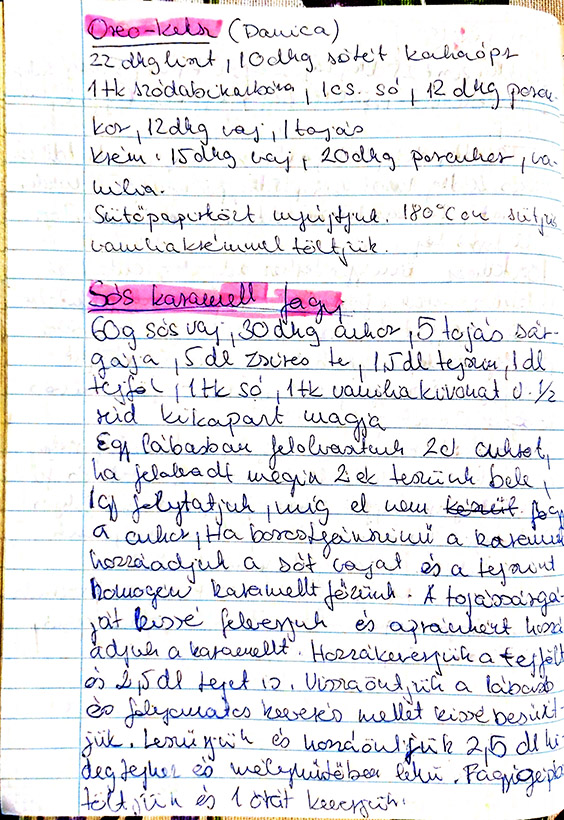 Oreo-keksz (Danica)
22 dkg liszt, 10 dkg sötét kakaópor
1 tk szódabikarbóna, 1 cs. só, 12 dkg porcu-
kor, 12 dkg vaj, 1 tojás
Krém: 15 dkg vaj, 20 dkg porcukor, va-
nilia.
Sütőpapírközt nyújtjuk. 180°C on sütjük
vaniliakrémmel töltjük.
Sós karamell fagyi
60g sós vaj, 30 dkg cukor, 5 tojás sár-
gája, 5 dl zsíros tej, 1,5 dl tejszín, 1 dl
tejföl, 1 tk só, 1 tk vanilia kivonat v. 1/2
rúd kikapart magja
Egy lábasban felolvasztunk 2 ek cukrot,
ha felolvadt megin 2 ek teszünk bele,
így folytatjuk, míg el nem készül fogy
a cukor, Ha borostyánszínű a karamell
hozzáadjuk a sót vajat és a tejszínt
homogén karamellt főzünk. A tojássárgá-
ját kissé felverjük és apránként hozzá
adjuk a karamellt. Hozzákeverjük a tejfölt
és 2,5 dl tejet is. Visszaöntjük a lábasb
és folyamatos keverés mellett kissé besűrít-
jük. Leszűrjük és hozzáöntjük 2,5 dl hi-
deg tejhez és mélyhűtőben lehű. Fagyigépbe
töltjük és 1 órát keverjük.